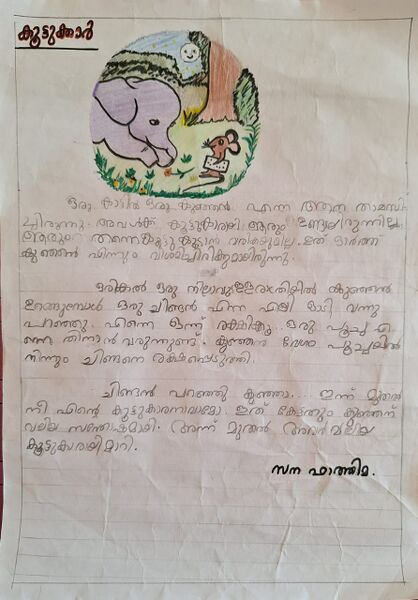 കൂട്ടുക്കാർ
ഒരു കാട്ടിൽ ഒരു കുഞ്ഞൻ എന്ന ആന താമസി
ച്ചിരുന്നു. അവൾക്ക് കൂട്ടുകാരായി ആരും ഉണ്ടായിരുന്നില്ല.
ആരും തന്നെ കൂട്ടുകൂടാൻ വരികയുമില്ല. ഇത് ഓർത്ത്
കുഞ്ഞൻ എന്നും വിശമിച്ചിരിക്കുമായിരുന്നു.
ഒരിക്കൽ ഒരു നിലാവുള്ള രാത്രിയിൽ കുഞ്ഞൻ
ഉറങ്ങുമ്പോൾ ഒരു ചിണ്ടൻ എന്ന എലി ഓടി വന്നു
പറഞ്ഞു. എന്നെ ഒന്ന് രക്ഷിക്കൂ. ഒരു പൂച്ച എ
ന്നെ തിന്നാൻ വരുന്നുണ്ട്. കുഞ്ഞൻ വേഗം പൂച്ചയിൽ
നിന്നും ചിണ്ടനെ രക്ഷപ്പെടുത്തി.
ചിണ്ടൻ പറഞ്ഞു കുഞ്ഞാ.... ഇന്ന് മുതൽ
നീ എന്റെ കൂട്ടുകാരനാവുമോ. ഇത് കേട്ടതും കുഞ്ഞന്
വലിയ സന്തോഷമായി. അന്ന് മുതൽ അവർ വലിയ
കൂട്ടുകാരായി മാറി.
സന ഫാത്തിമ.